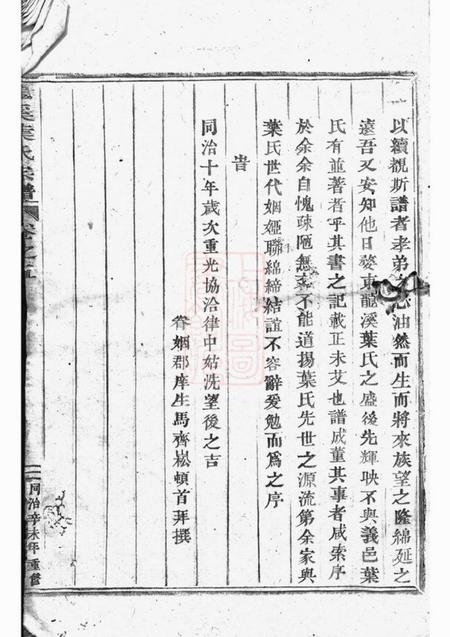 以續覩斯譜者孝弟之心油然而生而將來族望之隆綿延之
遠吾又安知他日婺東龍溪葉氏之盛後先輝映不與義邑葉
氏有並著者乎其書之記載正未艾也譜成董其事者咸索序
於余余自愧疎陋無不能道揚葉氏先世之源流第余家與
葉氏世代姻婭聯綿締結誼不容辭爰勉而為之序
旹
同治十年歲次重光協洽律中姑洗望後之吉
眷姻郡庠生馬齊崧頓首拜撰
溪葉氏宗譜
卷之五
同治辛未年重修